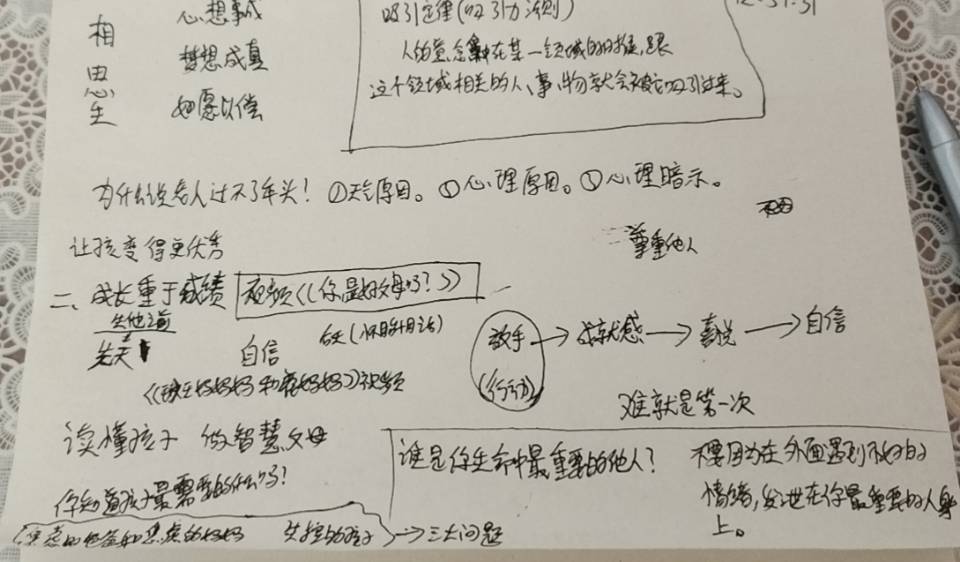 相思生
心想事成
梦想成真
如愿以偿
吸引定律(吸引力法则)
人的意念集中在某一领域的时候,跟
这个领域相关的人、事、物就会被它吸引过来。
为什么说老人过不了年头!①天气原因。②心理原因。③心理暗示。
让孩变得更优秀
尊重他人
二、成长重于成绩 视频《你是好父母吗?》
先天
自信
放手→成就感→喜悦→自信
(行动)
视频
难就是第一次
读懂孩子 做智慧父母
谁是你生命中最重要的他人?
不要因为在外面遇到不好的
情绪,发泄在你最重要的人身
上。
你知道孩子最需要的什么吗?
焦虑的爸爸和焦虑的妈妈 失控的孩子→三大问题